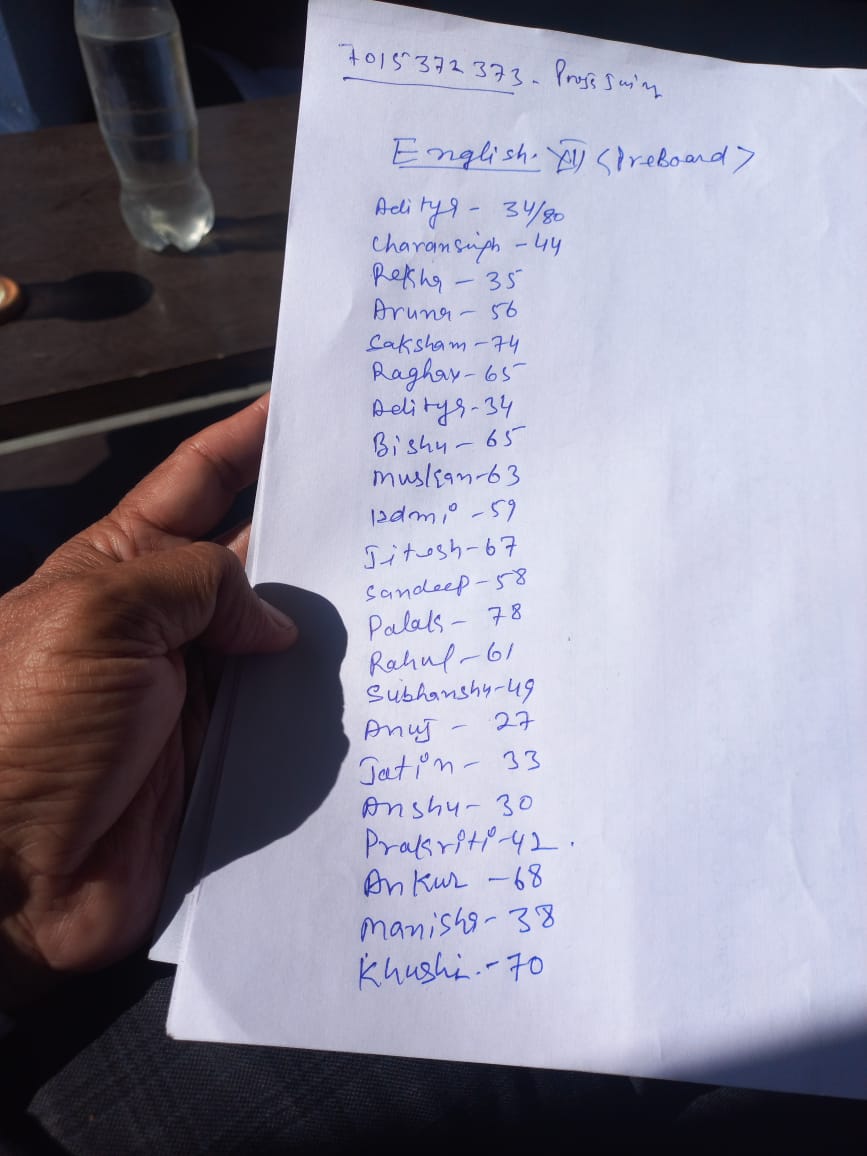 7015372373 -
English. XII <PreBoard>
Aditya - 34/80
Charansingh - 44
Rekha - 35
Aruna - 56
Saksham - 74
Raghav - 65
Aditya - 34
Bishu - 65
Muskan - 63
- 59
Jitesh - 67
Sandeep - 58
Palak - 78
Rahul - 61
Subhanshu - 49
Anuj - 27
Jatin - 33
Anshu - 30
Prakriti - 42.
Ankur - 68
Manisha - 38
Khushi. - 70